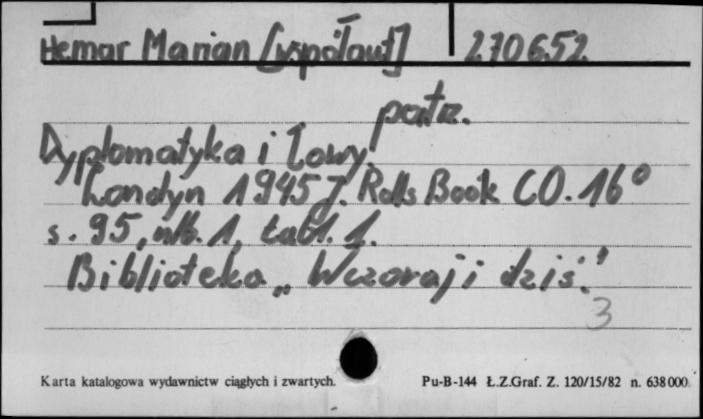 Hemar Marian [współaut] 270652
patrz.
Dyplomatyka i Łowy.
Londyn 1945 J. Rolls Book CO. 16°
s. 95, nlb. 1, tabl. 1.
Biblioteka „Wczoraj i dziś."
3
Karta katalogowa wydawnictw ciągłych i zwartych. Pu-B-144 Ł.Z.Graf. Z. 120/15/82 n. 638000.